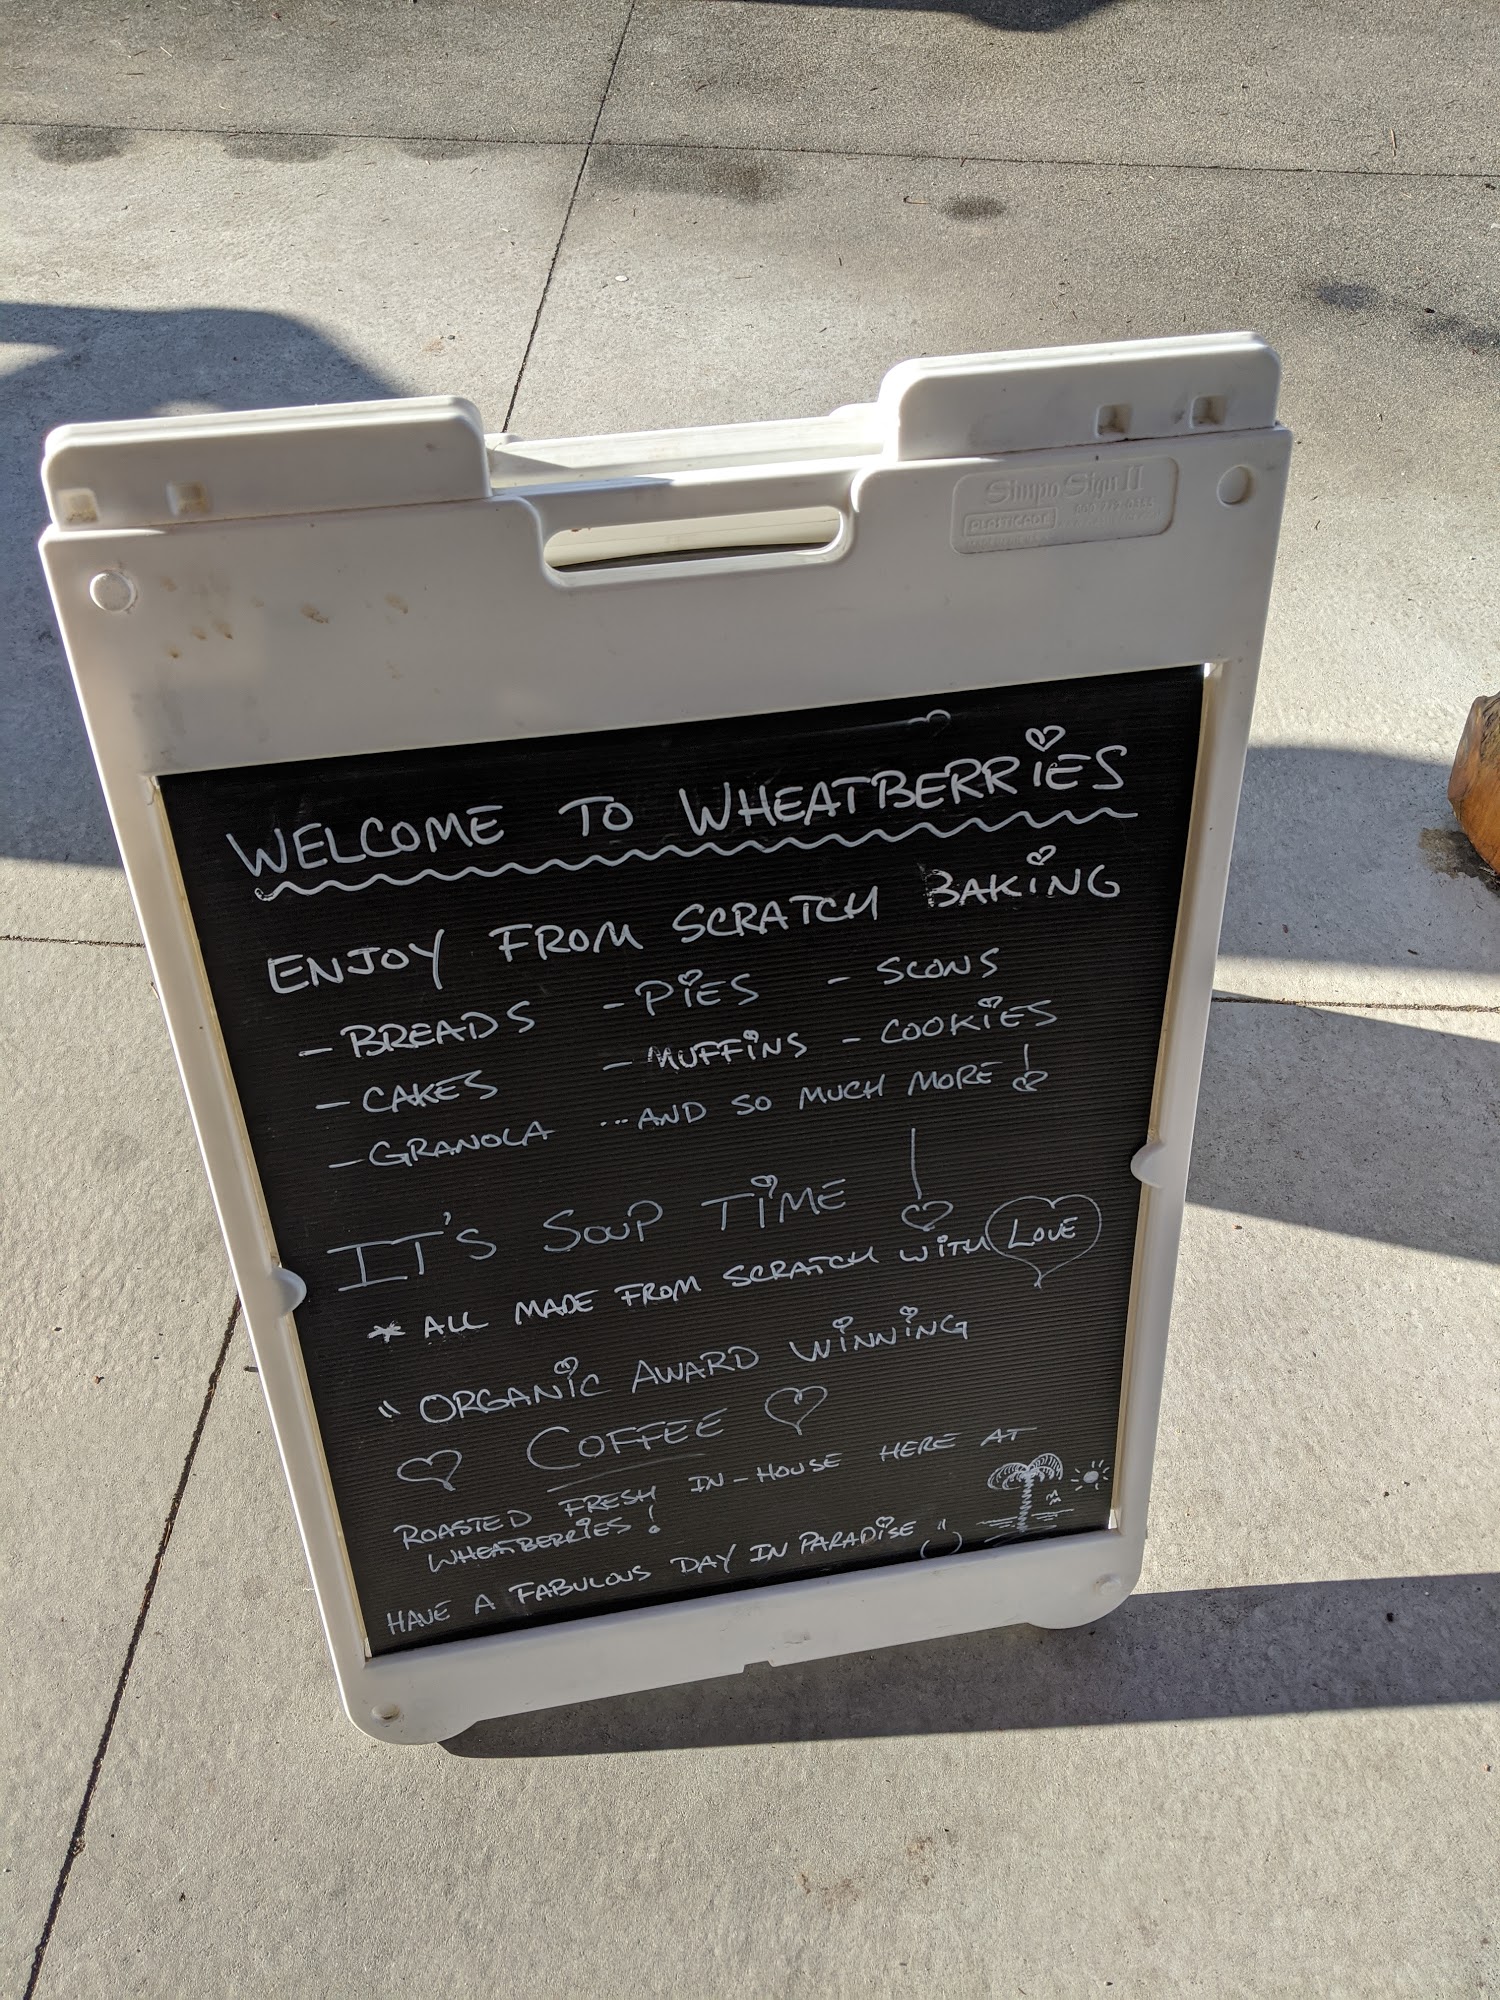 Simpo Sign II
PLASTICADE
WELCOME TO WHEATBERRIES
ENJOY FROM SCRATCH BAKING
- BREADS - PIES - SCONS
- CAKES - MUFFINS - COOKIES
- GRANOLA ...AND SO MUCH MORE!
IT'S SOUP TIME!
* ALL MADE FROM SCRATCH WITH LOVE
" ORGANIC AWARD WINNING
COFFEE
ROASTED FRESH IN-HOUSE HERE AT
WHEATBERRIES!
HAVE A FABULOUS DAY IN PARADISE